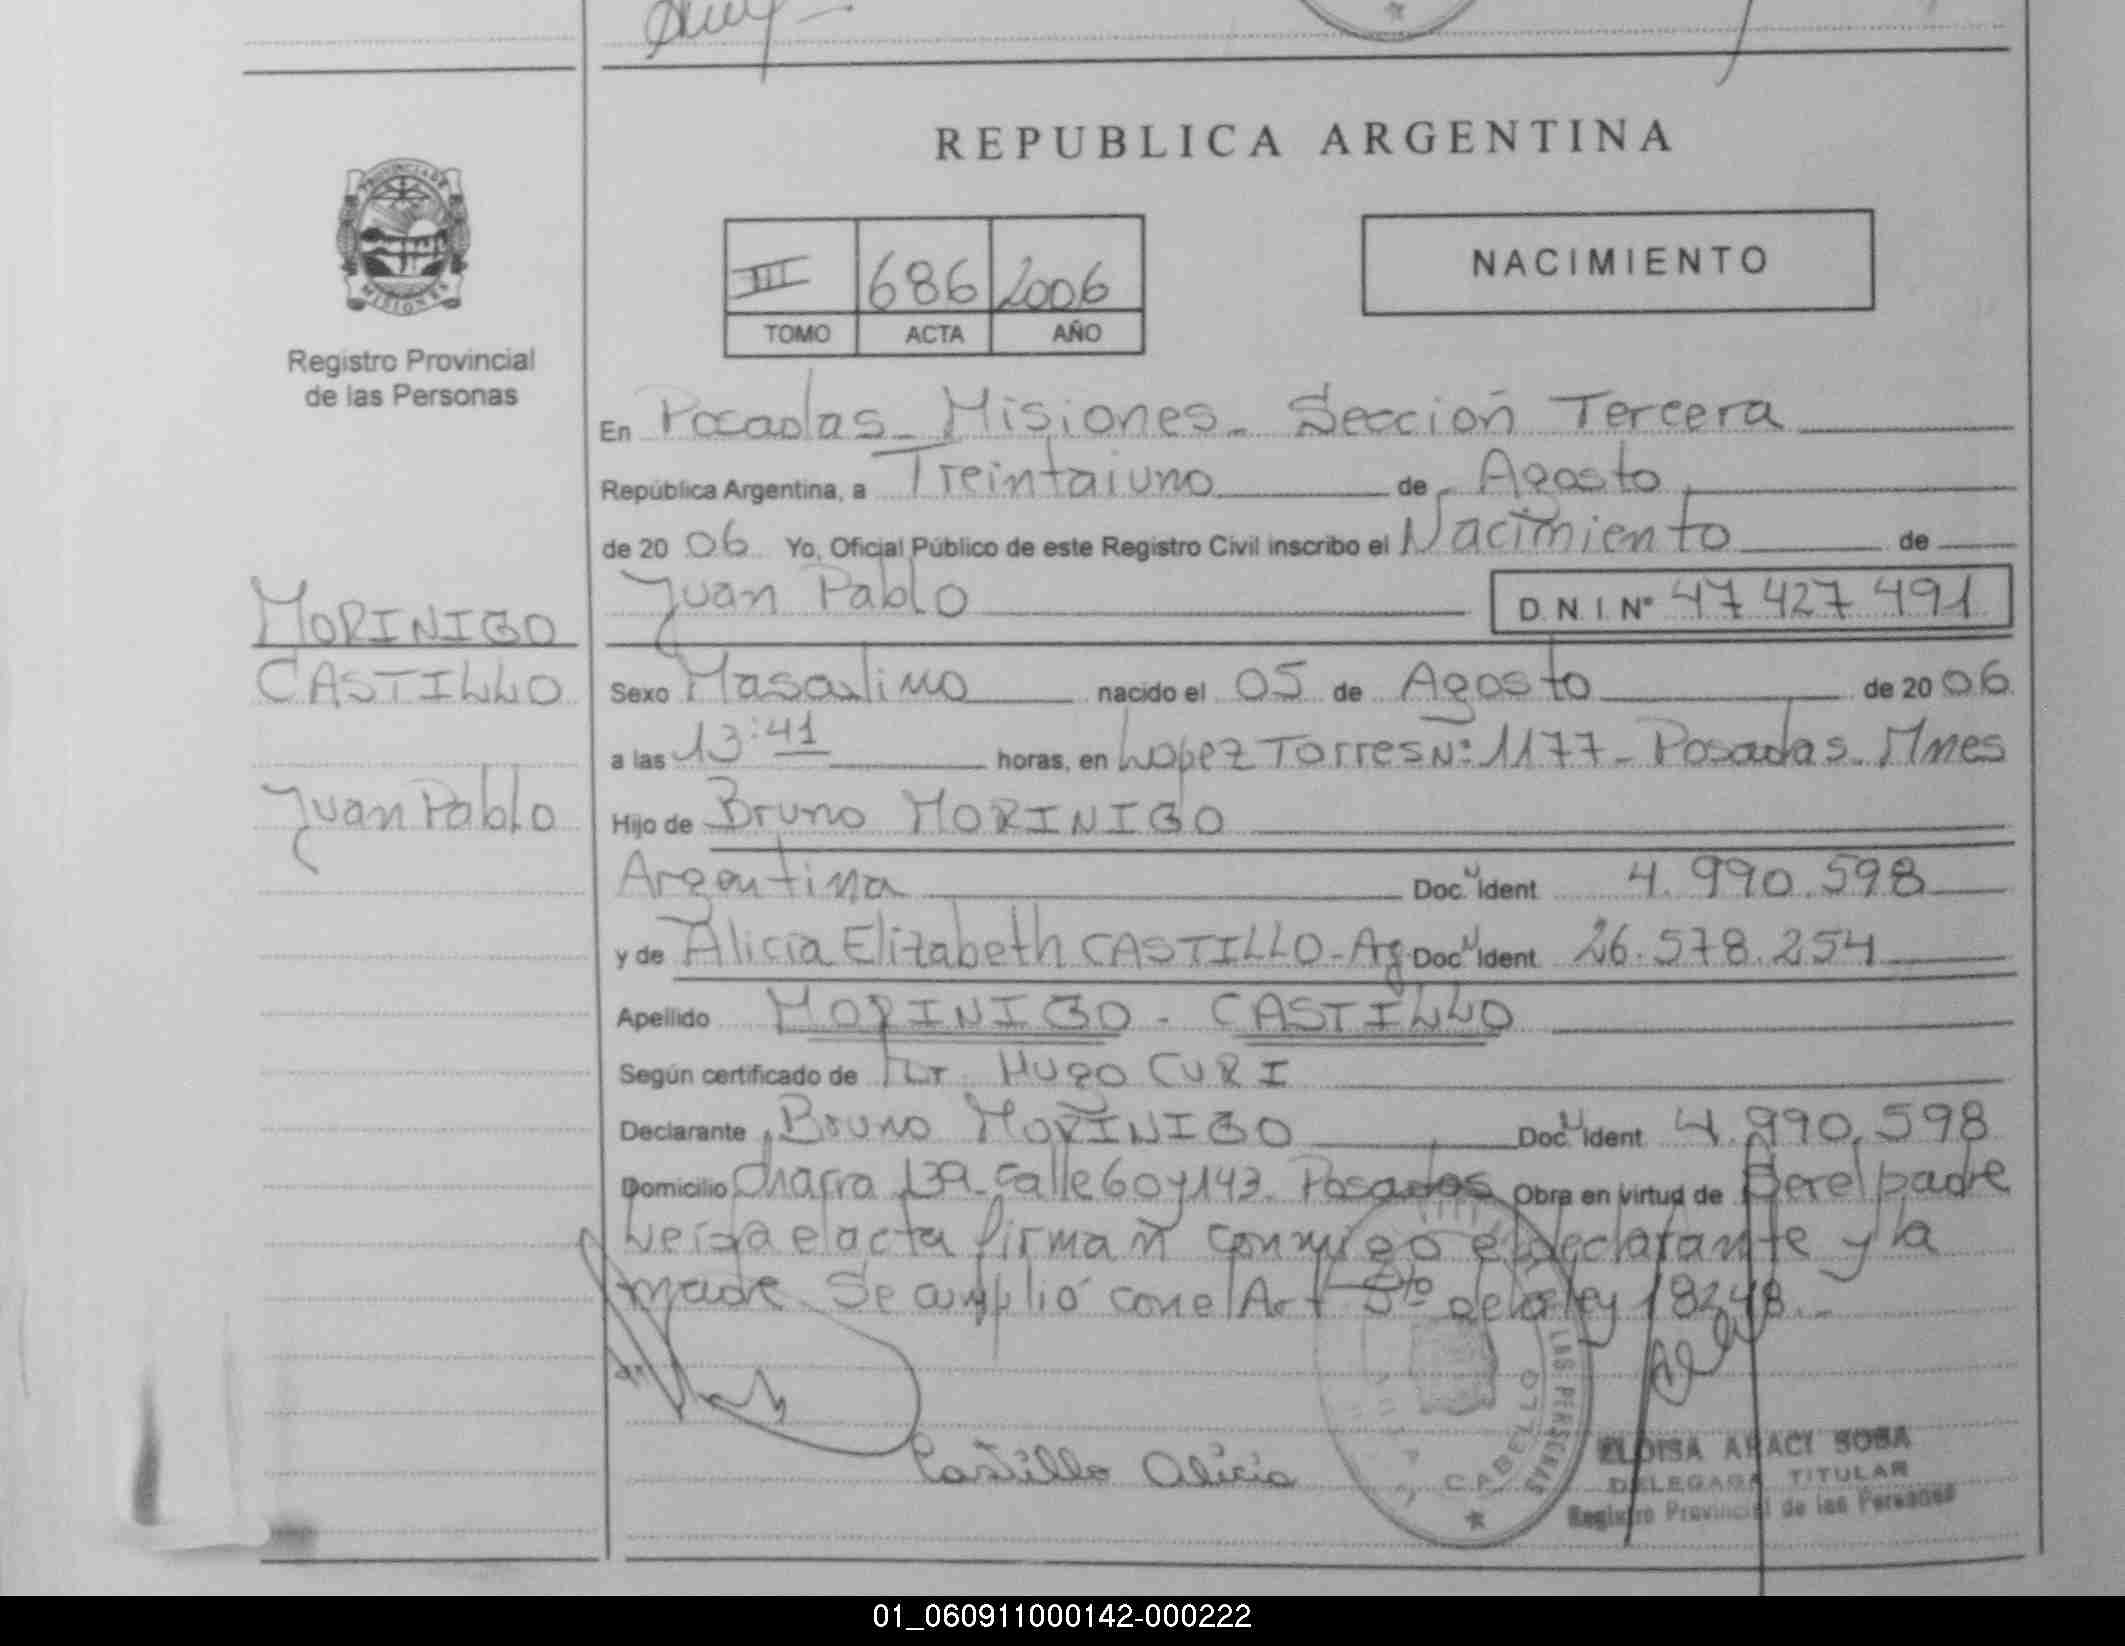 REPUBLICA ARGENTINA
PROVINCIA DE
MISIONES
Registro Provincial
de las Personas
III 686 2006
TOMO ACTA AÑO
NACIMIENTO
En Posadas - Misiones - Sección Tercera
República Argentina, a Treintaiuno de Agosto
de 20 06 Yo, Oficial Público de este Registro Civil inscribo el Nacimiento de
Juan Pablo D.N.I. Nº 47 427 491
MORINIGO
CASTILLO
Juan Pablo
Sexo Masculino nacido el 05 de Agosto de 20 06
a las 13:41 horas, en Lopez Torres Nº: 1177 - Posadas - Mnes
Hijo de Bruno MORINIGO
Argentina Doc. Ident 4.990.598
y de Alicia Elizabeth CASTILLO - Ag Doc. Ident 26.578.254
Apellido MORINIGO - CASTILLO
Según certificado de Hugo CURI
Declarante Bruno MORINIGO Doc. Ident 4.990.598
Domicilio Chacra 139 - Calle 60 y 143 - Posadas Obra en virtud de Ser el padre
Leída el acta firman conmigo el declarante y la
madre. Se cumplió con el Art 5to de la ley 18248.-
Castillo Alicia
LAS PERSONAS
CABELLO
ELOISA ARACI SOSA
DELEGADA TITULAR
Registro Provincial de las Personas
01_060911000142-000222